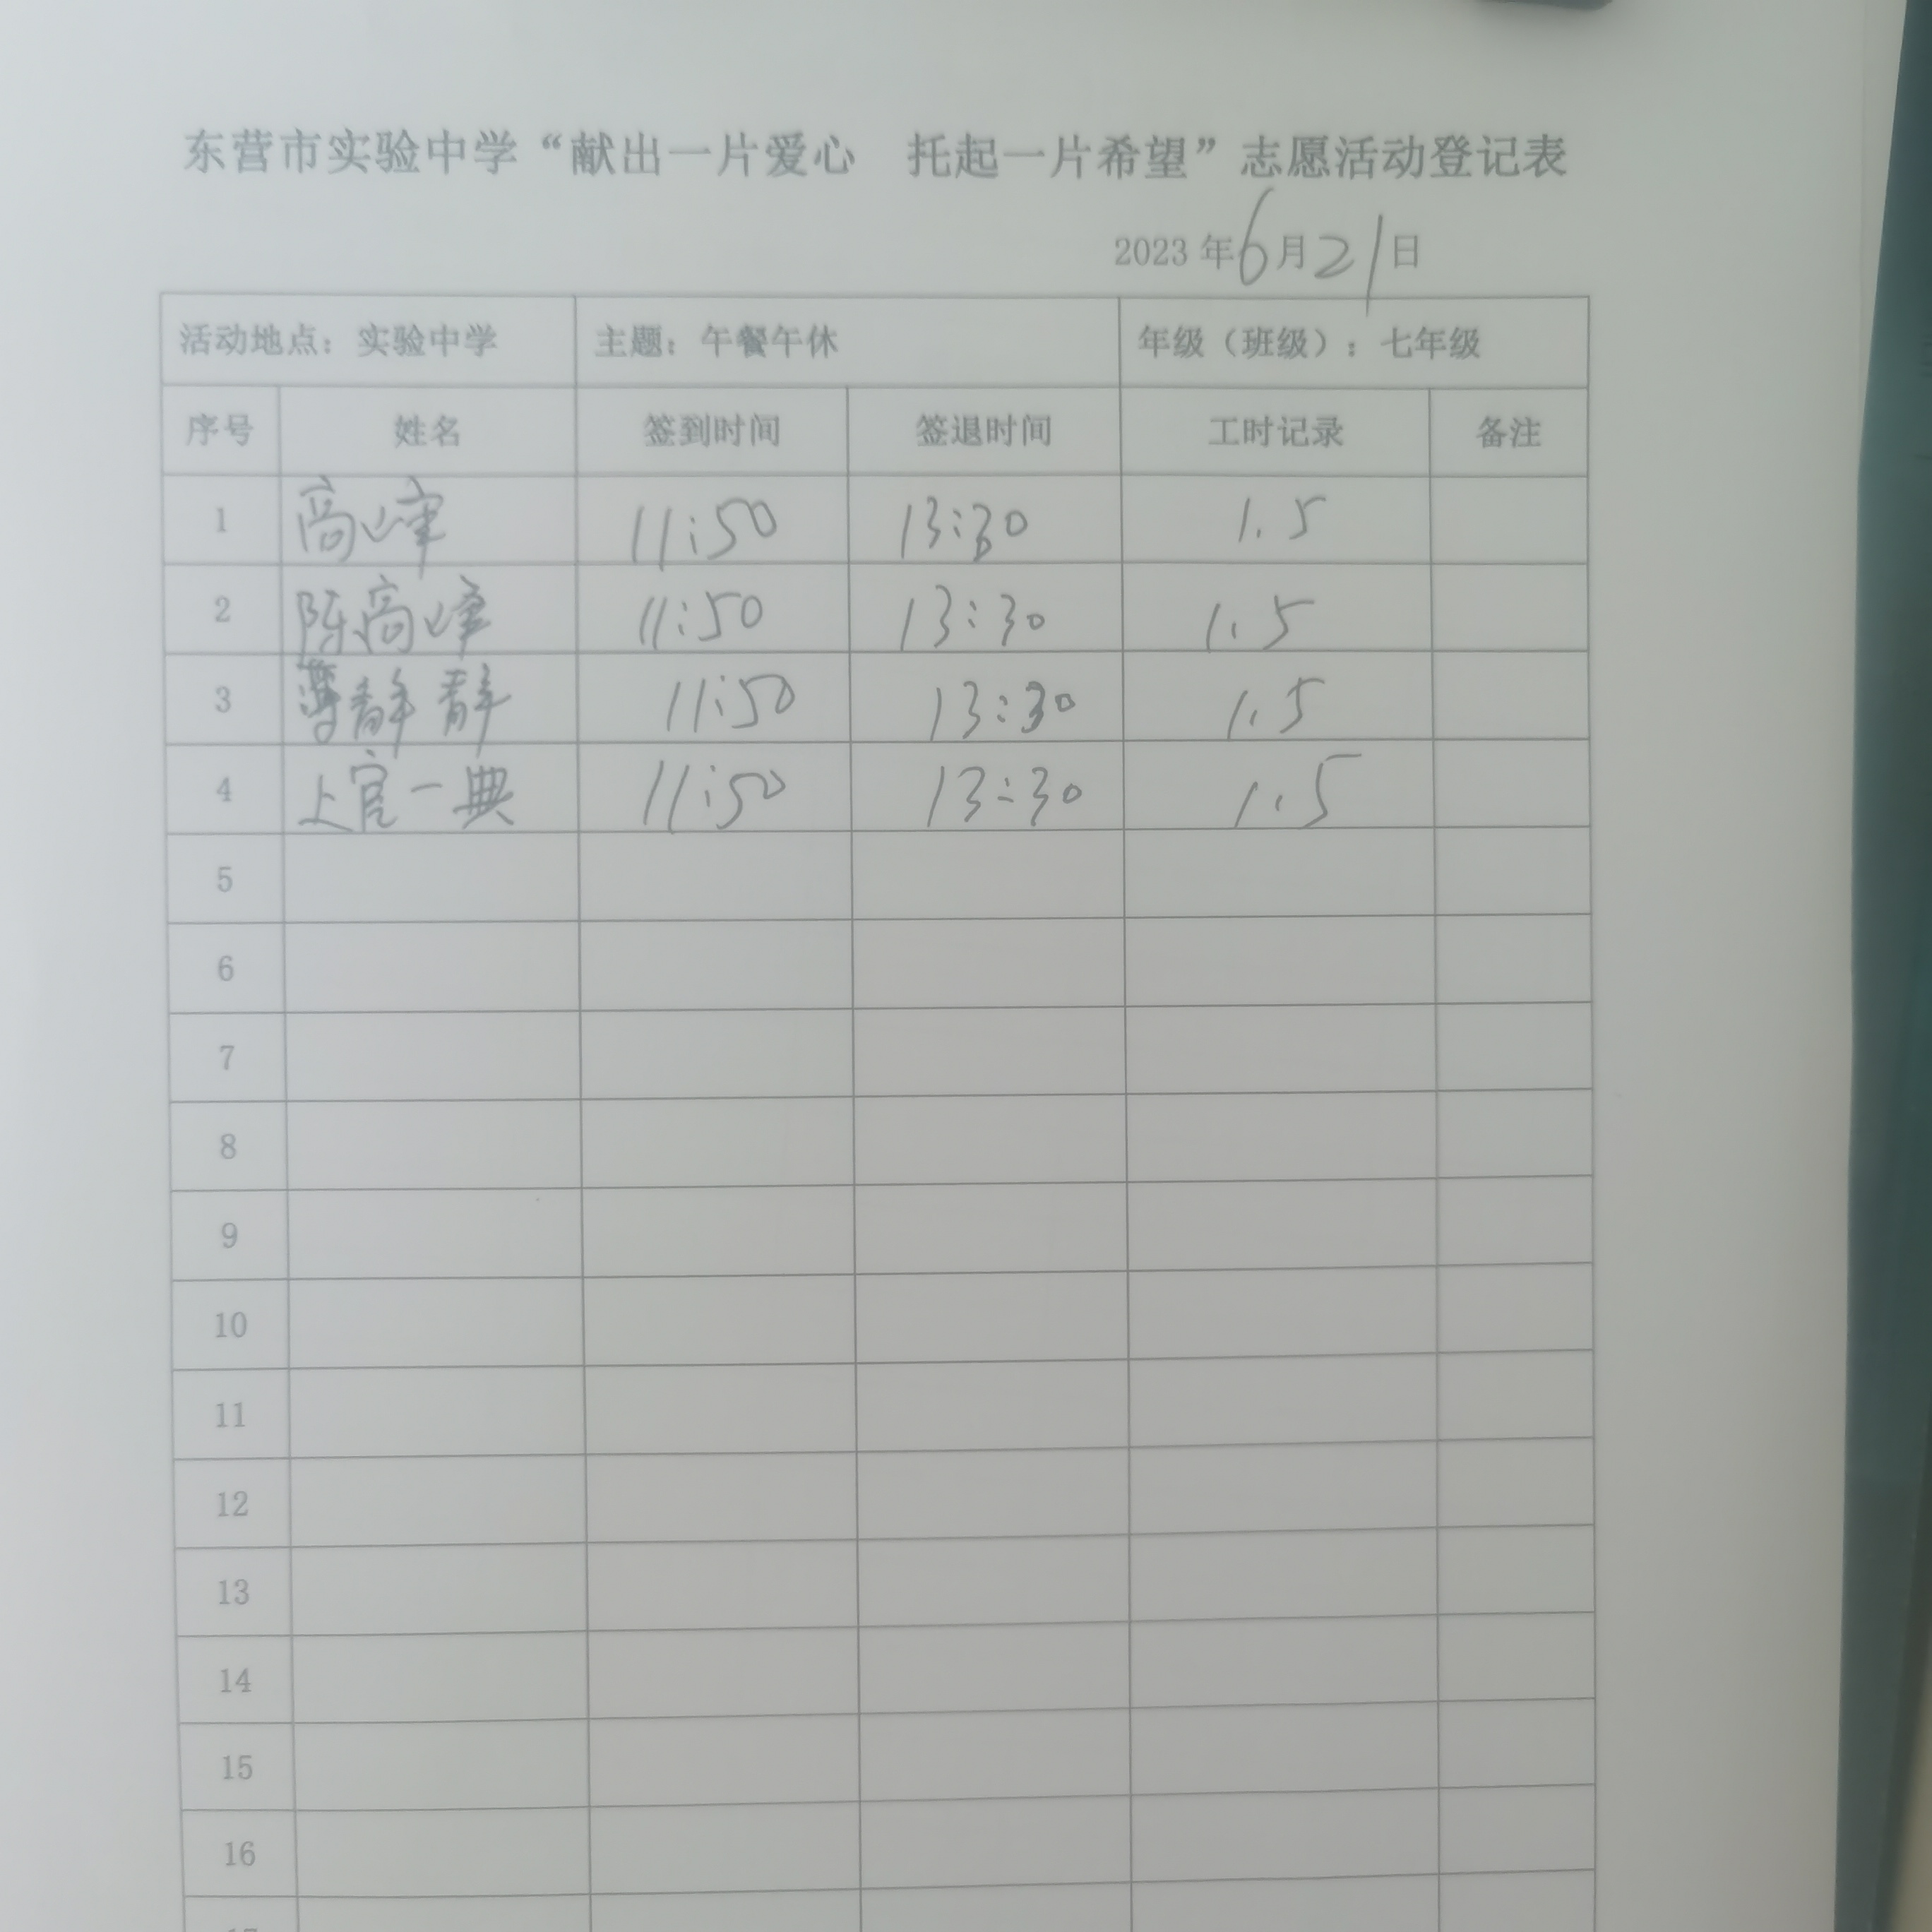 东营市实验中学“献出一片爱心 托起一片希望”志愿活动登记表
2023年6月21日
活动地点：实验中学 主题：午餐午休 年级（班级）：七年级
序号 姓名 签到时间 签退时间 工时记录 备注
1 高峰 11:50 13:30 1.5
2 陈高峰 11:50 13:30 1.5
3 薄静静 11:50 13:30 1.5
4 上官一典 11:50 13:30 1.5
5
6
7
8
9
10
11
12
13
14
15
16